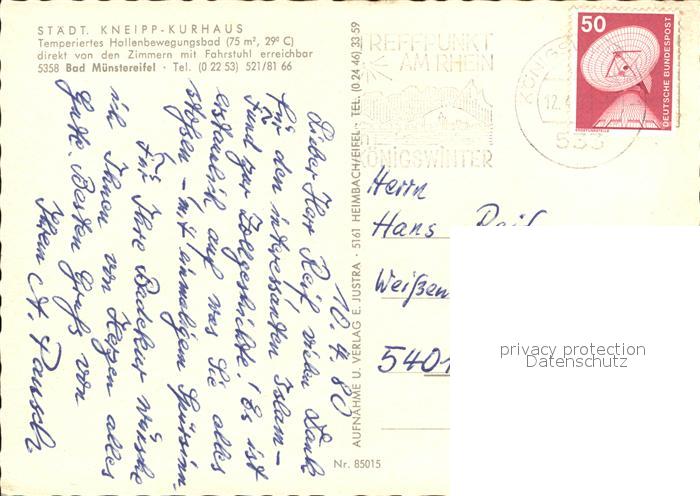 STÄDT. KNEIPP-KURHAUS
Temperiertes Hallenbewegungsbad (75 m², 29° C)
direkt von den Zimmern mit Fahrstuhl erreichbar
5358 Bad Münstereifel · Tel. (0 22 53) 521/81 66
10.4.80
Lieber Herr Reif, vielen Dank
für den interessanten Islam-
Fund zur Zollgeschichte! Es ist
erstaunlich auf was Sie alles
stoßen, – mit einmaligem Spürsinn.
Für Ihre Badekur wünsche
ich Ihnen von Herzen alles
Gute. Besten Gruß von
Ihrem A.
AUFNAHME U. VERLAG E. JUSTRA · 5161 HEIMBACH/EIFEL · TEL. (0 24 46) 33 59
Nr. 85015
TREFFPUNKT
AM RHEIN
KÖNIGSWINTER
KÖNIGS
12.
533
50
DEUTSCHE BUNDESPOST
Herrn
Hans Reif
Weißen
5401
privacy protection
Datenschutz